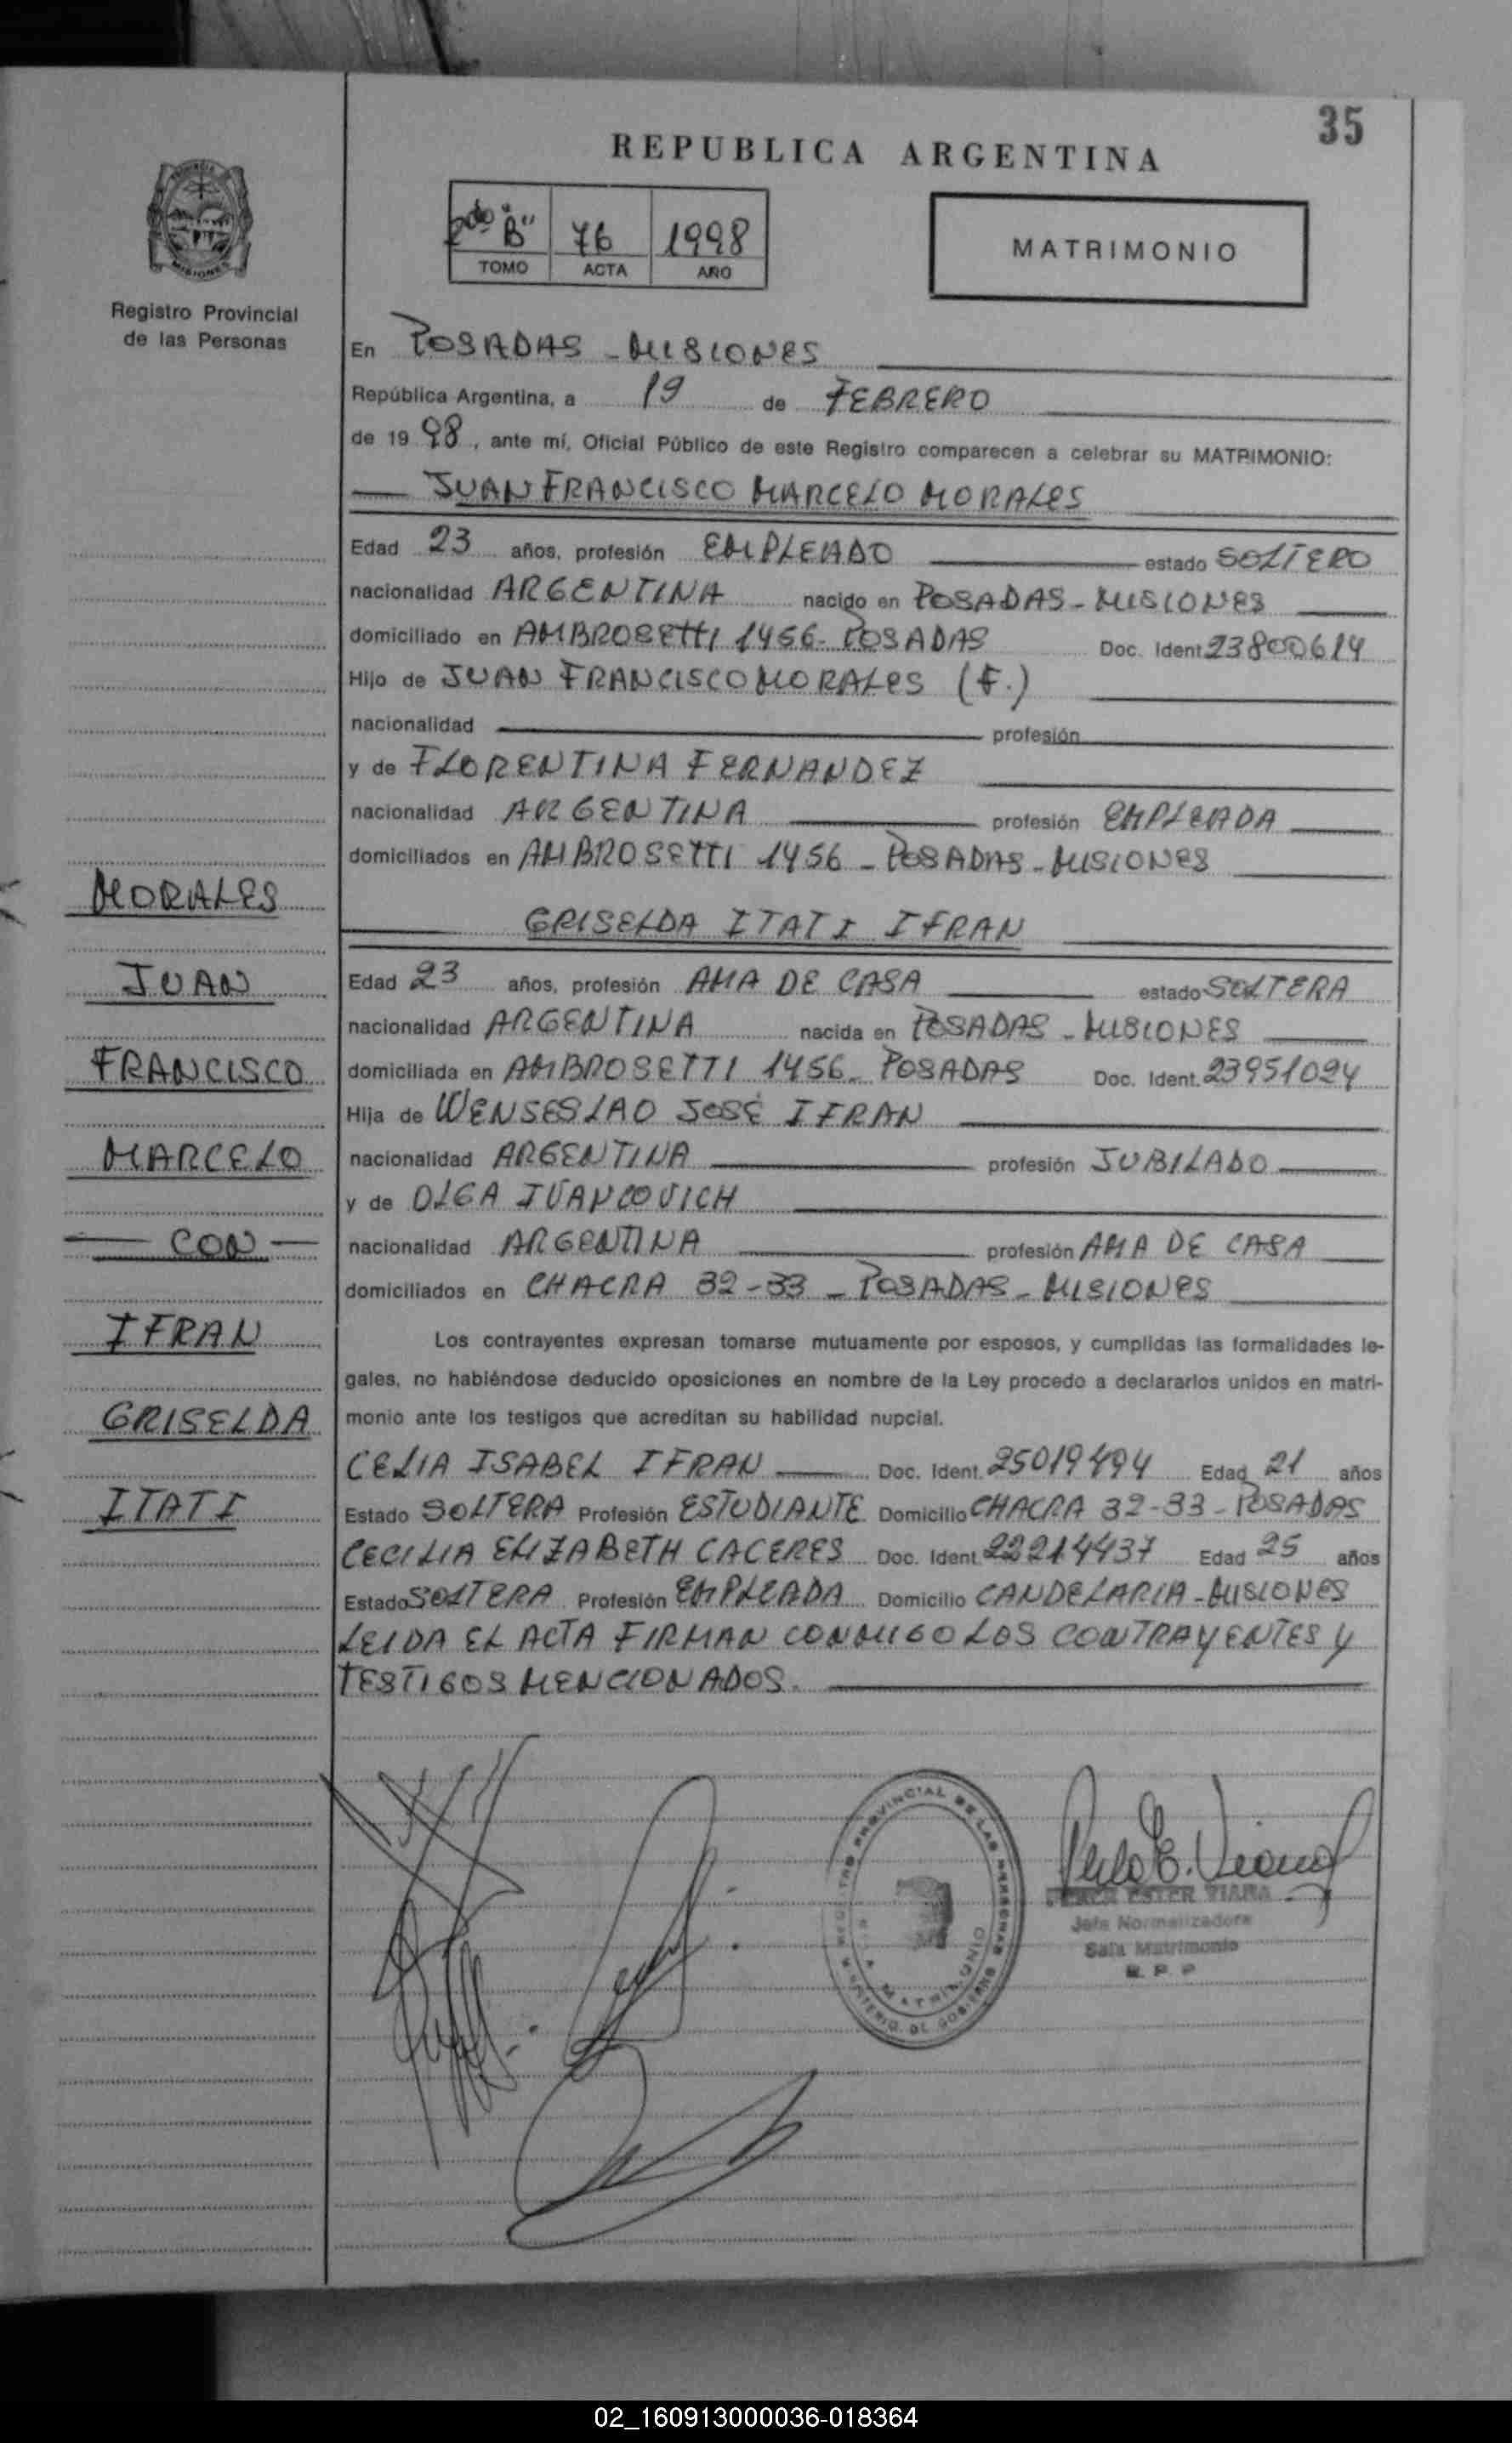 35
REPUBLICA ARGENTINA
2do "B" 76 1998
TOMO ACTA AÑO
MATRIMONIO
MISIONES
Registro Provincial
de las Personas
En POSADAS - MISIONES
República Argentina, a 19 de FEBRERO
de 1998, ante mí, Oficial Público de este Registro comparecen a celebrar su MATRIMONIO:
JUAN FRANCISCO MARCELO MORALES
Edad 23 años, profesión EMPLEADO estado SOLTERO
nacionalidad ARGENTINA nacido en POSADAS - MISIONES
domiciliado en AMBROSETTI 1456 - POSADAS Doc. Ident 23800614
Hijo de JUAN FRANCISCO MORALES (F.)
nacionalidad profesión
y de FLORENTINA FERNANDEZ
nacionalidad ARGENTINA profesión EMPLEADA
domiciliados en AMBROSETTI 1456 - POSADAS - MISIONES
GRISELDA ITATI IFRAN
Edad 23 años, profesión AMA DE CASA estado SOLTERA
nacionalidad ARGENTINA nacida en POSADAS - MISIONES
domiciliada en AMBROSETTI 1456 - POSADAS Doc. Ident. 23951094
Hija de WENSESLAO JOSÉ IFRAN
nacionalidad ARGENTINA profesión JUBILADO
y de OLGA IVANCOVICH
nacionalidad ARGENTINA profesión AMA DE CASA
domiciliados en CHACRA 32-33 - POSADAS - MISIONES
Los contrayentes expresan tomarse mutuamente por esposos, y cumplidas las formalidades le-
gales, no habiéndose deducido oposiciones en nombre de la Ley procedo a declararlos unidos en matri-
monio ante los testigos que acreditan su habilidad nupcial.
CELIA ISABEL IFRAN Doc. Ident. 25019494 Edad 21 años
Estado SOLTERA Profesión ESTUDIANTE Domicilio CHACRA 32-33 - POSADAS
CECILIA ELIZABETH CACERES Doc. Ident. 22214437 Edad 25 años
Estado SOLTERA Profesión EMPLEADA Domicilio CANDELARIA - MISIONES
LEIDA EL ACTA FIRMAN CONMIGO LOS CONTRAYENTES Y
TESTIGOS MENCIONADOS.
MORALES
JUAN
FRANCISCO
MARCELO
— CON —
IFRAN
GRISELDA
ITATI
PROVINCIAL DE LAS PERSONAS
MINISTERIO DE GOBIERNO
MATRIMONIO
ESTER VIANA
Jefa Normalizadora
Sala Matrimonio
R. P. P
02_160913000036-018364